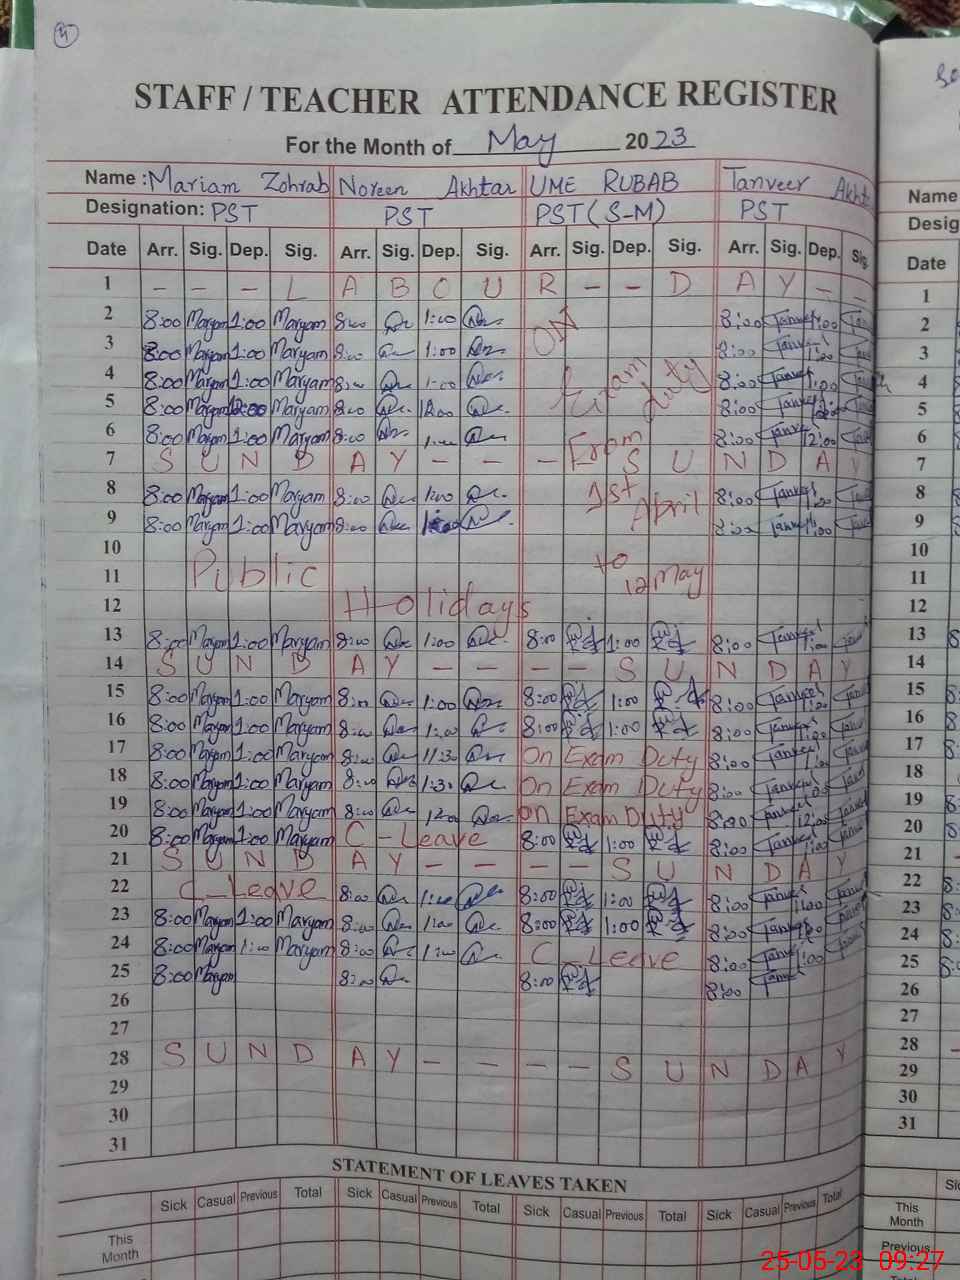 STAFF / TEACHER ATTENDANCE REGISTER
For the Month of May 2023
Name : Mariam Zohrab Noreen Akhtar UME RUBAB Tanveer Akht
Designation: PST PST PST (S-M) PST
Date Arr. Sig. Dep. Sig. Arr. Sig. Dep. Sig. Arr. Sig. Dep. Sig. Arr. Sig. Dep. Sig.
1 - - - L A B O U R - - D A Y - -
2 8:00 Maryam 1:00 Maryam 8:00 1:00 ON 8:00 Tanveer 1:00
3 8:00 Maryam 1:00 Maryam 8:00 1:00 8:00 Tanveer 1:00
4 8:00 Maryam 1:00 Maryam 8:00 1:00 Exam duty 8:00 Tanveer 1:00
5 8:00 Maryam 12:00 Maryam 8:00 12:00 8:00 Tanveer 12:00
6 8:00 Maryam 1:00 Maryam 8:00 1:00 From 8:00 Tanveer 12:00
7 S U N D A Y - - - - S U N D A Y
8 8:00 Maryam 1:00 Maryam 8:00 1:00 1st 8:00 Tanveer 1:00
9 8:00 Maryam 1:00 Maryam 8:00 1:00 April 8:00 Tanveer 1:00
10
11 Public to 12 May
12 Holidays
13 8:00 Maryam 1:00 Maryam 8:00 1:00 8:00 1:00 8:00 Tanveer 1:00
14 S U N D A Y - - - - S U N D A Y
15 8:00 Maryam 1:00 Maryam 8:00 1:00 8:00 1:00 8:00 Tanveer 1:00
16 8:00 Maryam 1:00 Maryam 8:00 1:00 8:00 1:00 8:00 Tanveer 1:00
17 8:00 Maryam 1:00 Maryam 8:00 11:30 On Exam Duty 8:00 Tanveer 1:00
18 8:00 Maryam 1:00 Maryam 8:00 1:30 On Exam Duty 8:00 Tanveer 1:00
19 8:00 Maryam 1:00 Maryam 8:00 12:00 On Exam Duty 8:00 Tanveer 12:00
20 8:00 Maryam 1:00 Maryam C - Leave 8:00 1:00 8:00 Tanveer 1:00
21 S U N D A Y - - - - S U N D A Y
22 C - Leave 8:00 1:00 8:00 1:00 8:00 Tanveer 1:00
23 8:00 Maryam 1:00 Maryam 8:00 1:00 8:00 1:00 8:00 Tanveer
24 8:00 Maryam 1:00 Maryam 8:00 1:00 C - Leave 8:00 Tanveer 1:00
25 8:00 Maryam 8:00 8:00 8:00 Tanveer
26
27
28 S U N D A Y - - - - S U N D A Y
29
30
31
STATEMENT OF LEAVES TAKEN
Sick Casual Previous Total Sick Casual Previous Total Sick Casual Previous Total Sick Casual Previous Total
This Month
Name
Desig
Date
1
2
3
4
5
6
7
8
9
10
11
12
13
14
15
16
17
18
19
20
21
22
23
24
25
26
27
28
29
30
31
This Month
Previous
25-05-23 09:27